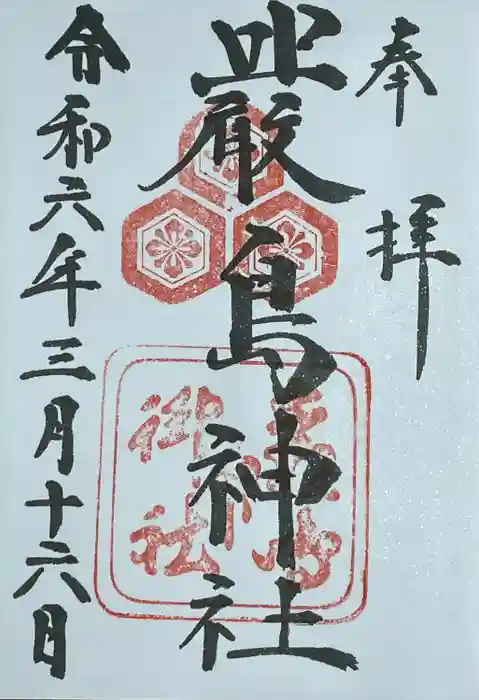 奉拝
嚴島神社
令和六年三月十六日
御社